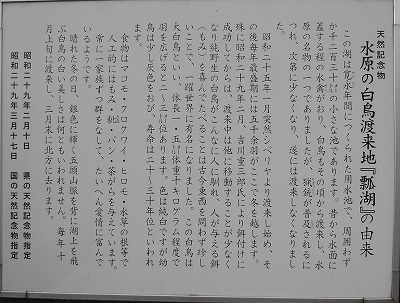 天然記念物
水原の白鳥渡来地『瓢湖』の由来
この湖は寛永年間につくられた用水池で、周囲わず
か千二百三十米の小さな池であります。昔から水面に
蓋する程の水禽がおり、白鳥もその頃から渡来し、水
原の名物の一つでありましたが、猟銃が普及されるに
つれ、次第に少なくなり、遂には渡来しなくなりまし
た。
昭和二十五年一月突然シベリヤより渡来し始め、そ
の後毎年最盛期には五千余羽がここで冬を越します。
殊に昭和二十九年二月、吉川重三郎氏により餌付けに
成功してからは、渡来中は他に移動することが少なく
なり純野生の白鳥がこんなに人に馴れ、人が与える餌
(もみ)を喜んでたべることは古今東西を問わず珍し
いことで、一躍世界に有名になりました。この白鳥は
大白鳥といい、体長一・五米体重十キログラム程度で
羽を広げると二〜三米位あります。色は純白ですが幼
鳥は少し灰色をおび、寿命は二十〜三十年位といわれ
食物はマコモ・クログワイ・ヒロモ・水草の根等で
人工的にはもみ・籾・パン・茶がらを与えています。
常に一家族ずつ群をなし、たいへん愛情に富んで
いるようです。
晴れた冬の日、銀色に輝く五頭山脈を背に湖上を飛
ぶ白鳥の白い美しさは何ともいわれません。毎年十
月上旬に渡来し、三月末に北方に去ります。
昭和二十九年二月十日 県の天然記念物指定
昭和二十九年三月十七日 国の天然記念物指定